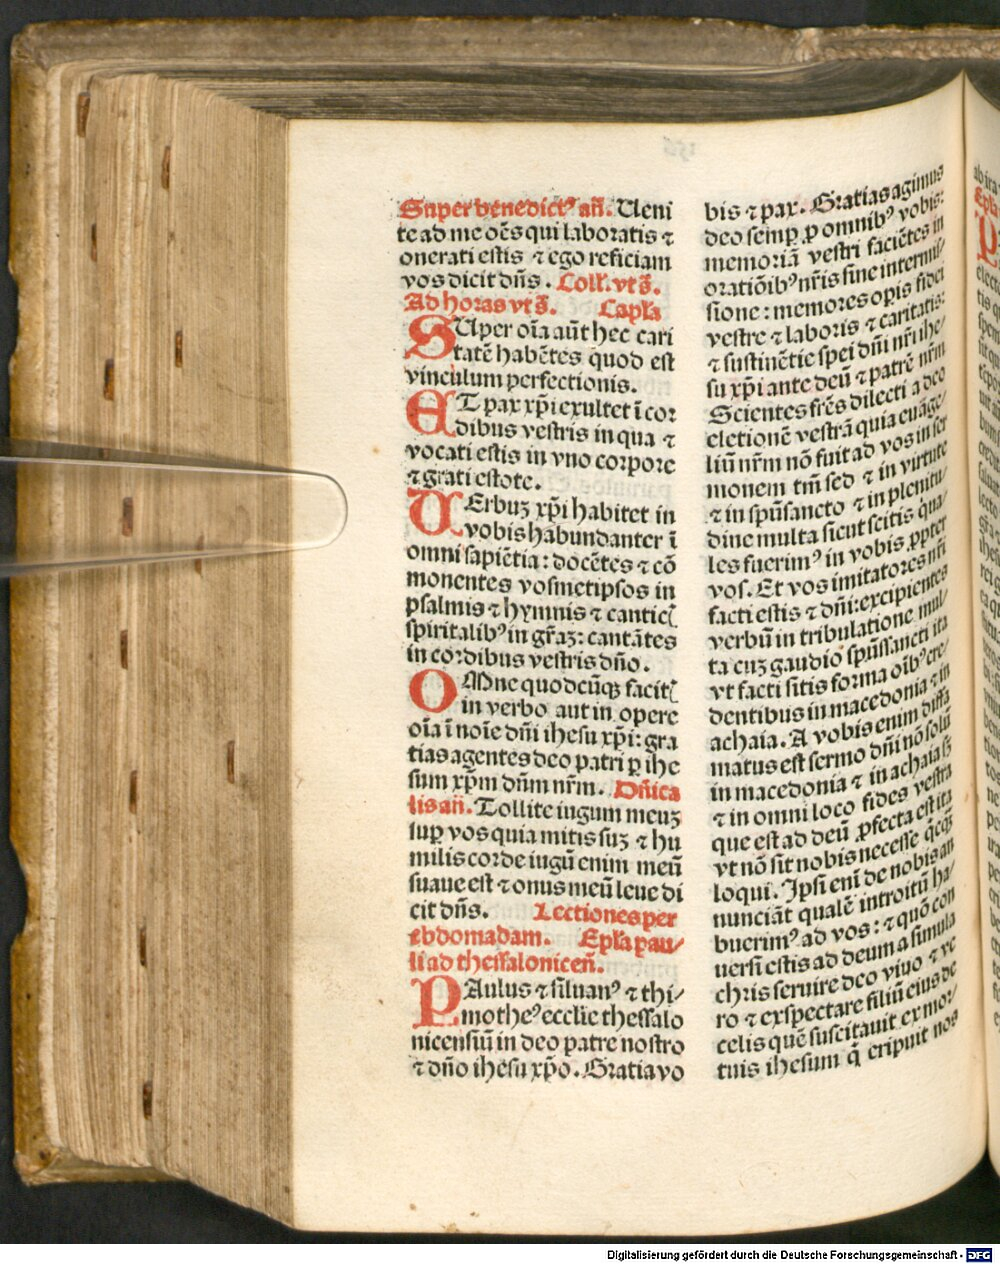 Super benedictꝰ an̄. Ueni
te ad me oēs qui laboratis ⁊
onerati estis ⁊ ego reficiam
vos dicit dn̄s. Coll̄. vt s̄.
Ad horas vt s̄. Capl̄a
SUper oīa aūt hec cari
tatē habētes quod est
vinculum perfectionis.
ET pax xp̄i exultet ī cor
dibus vestris in qua ⁊
vocati estis in vno corpore
⁊ grati estote.
UErbuꝫ xp̄i habitet in
vobis habundanter ī
omni sapiētia: docētes ⁊ cō
monentes vosmetipsos in
psalmis ⁊ hymnis ⁊ canticꝭ
spiritalibꝰ in gr̄aꝫ: cantātes
in cordibus vestris dn̄o.
OMne quodcūqꝫ facitꝭ
in verbo aut in opere
oīa ī noīe dn̄i ihesu xp̄i: gra
tias agentes deo patri ꝑ ihe
sum xp̄m dn̄m nr̄m. Dn̄ica
lis an̄. Tollite iugum meuꝫ
suꝑ vos quia mitis suꝫ ⁊ hu
milis corde iugū enim meū
suaue est ⁊ onus meū leue di
cit dn̄s. Lectiones per
ebdomadam. Epl̄a pau/
li ad thessalonicen̄.
PAulus ⁊ siluanꝰ ⁊ thi/
motheꝰ ecclie thessalo
nicensiū in deo patre nostro
⁊ dn̄o ihesu xp̄o. Gratia vo
bis ⁊ pax. Gratias agimus
deo semꝑ ꝓ omnibꝰ vobis:
memoriā vestri faciētes in
oratiōibꝰ nr̄is sine intermis/
sione: memores oꝑis fidei
vestre ⁊ laboris ⁊ caritatis:
⁊ sustinētie spei dn̄i nr̄i ihe/
su xp̄i ante deū ⁊ patrē nr̄m
Scientes fr̄es dilecti a deo
eletionē vestrā quia euāge/
liū nr̄m nō fuit ad vos in ser
monem tm̄ sed ⁊ in virtute
⁊ in spūsancto ⁊ in plenitu/
dine multa sicut scitis qua/
les fuerimꝰ in vobis ꝓpter
vos. Et vos imitatores nr̄i
facti estis ⁊ dn̄i: excipientes
verbū in tribulatione mul/
ta cuꝫ gaudio spūssancti ita
vt facti sitis forma oībꝰ cre/
dentibus in macedonia ⁊ in
achaia. A vobis enim diffa
matus est sermo dn̄i nō solū
in macedonia ⁊ in achaia sꝫ
⁊ in omni loco fides vestra
que est ad deū ꝓfecta est ita
vt nō sit nobis necesse q̄cqꝫ
loqui. Ipsi enī de nobis an
nunciāt qualē introitū ha/
buerimꝰ ad vos: ⁊ quō con
uersi estis ad deum a simula
chris seruire deo viuo ⁊ ve
ro ⁊ exspectare filiū eius de
celis quē suscitauit ex mor/
tuis ihesum q̄ eripuit nos
Digitalisierung gefördert durch die Deutsche Forschungsgemeinschaft - DFG